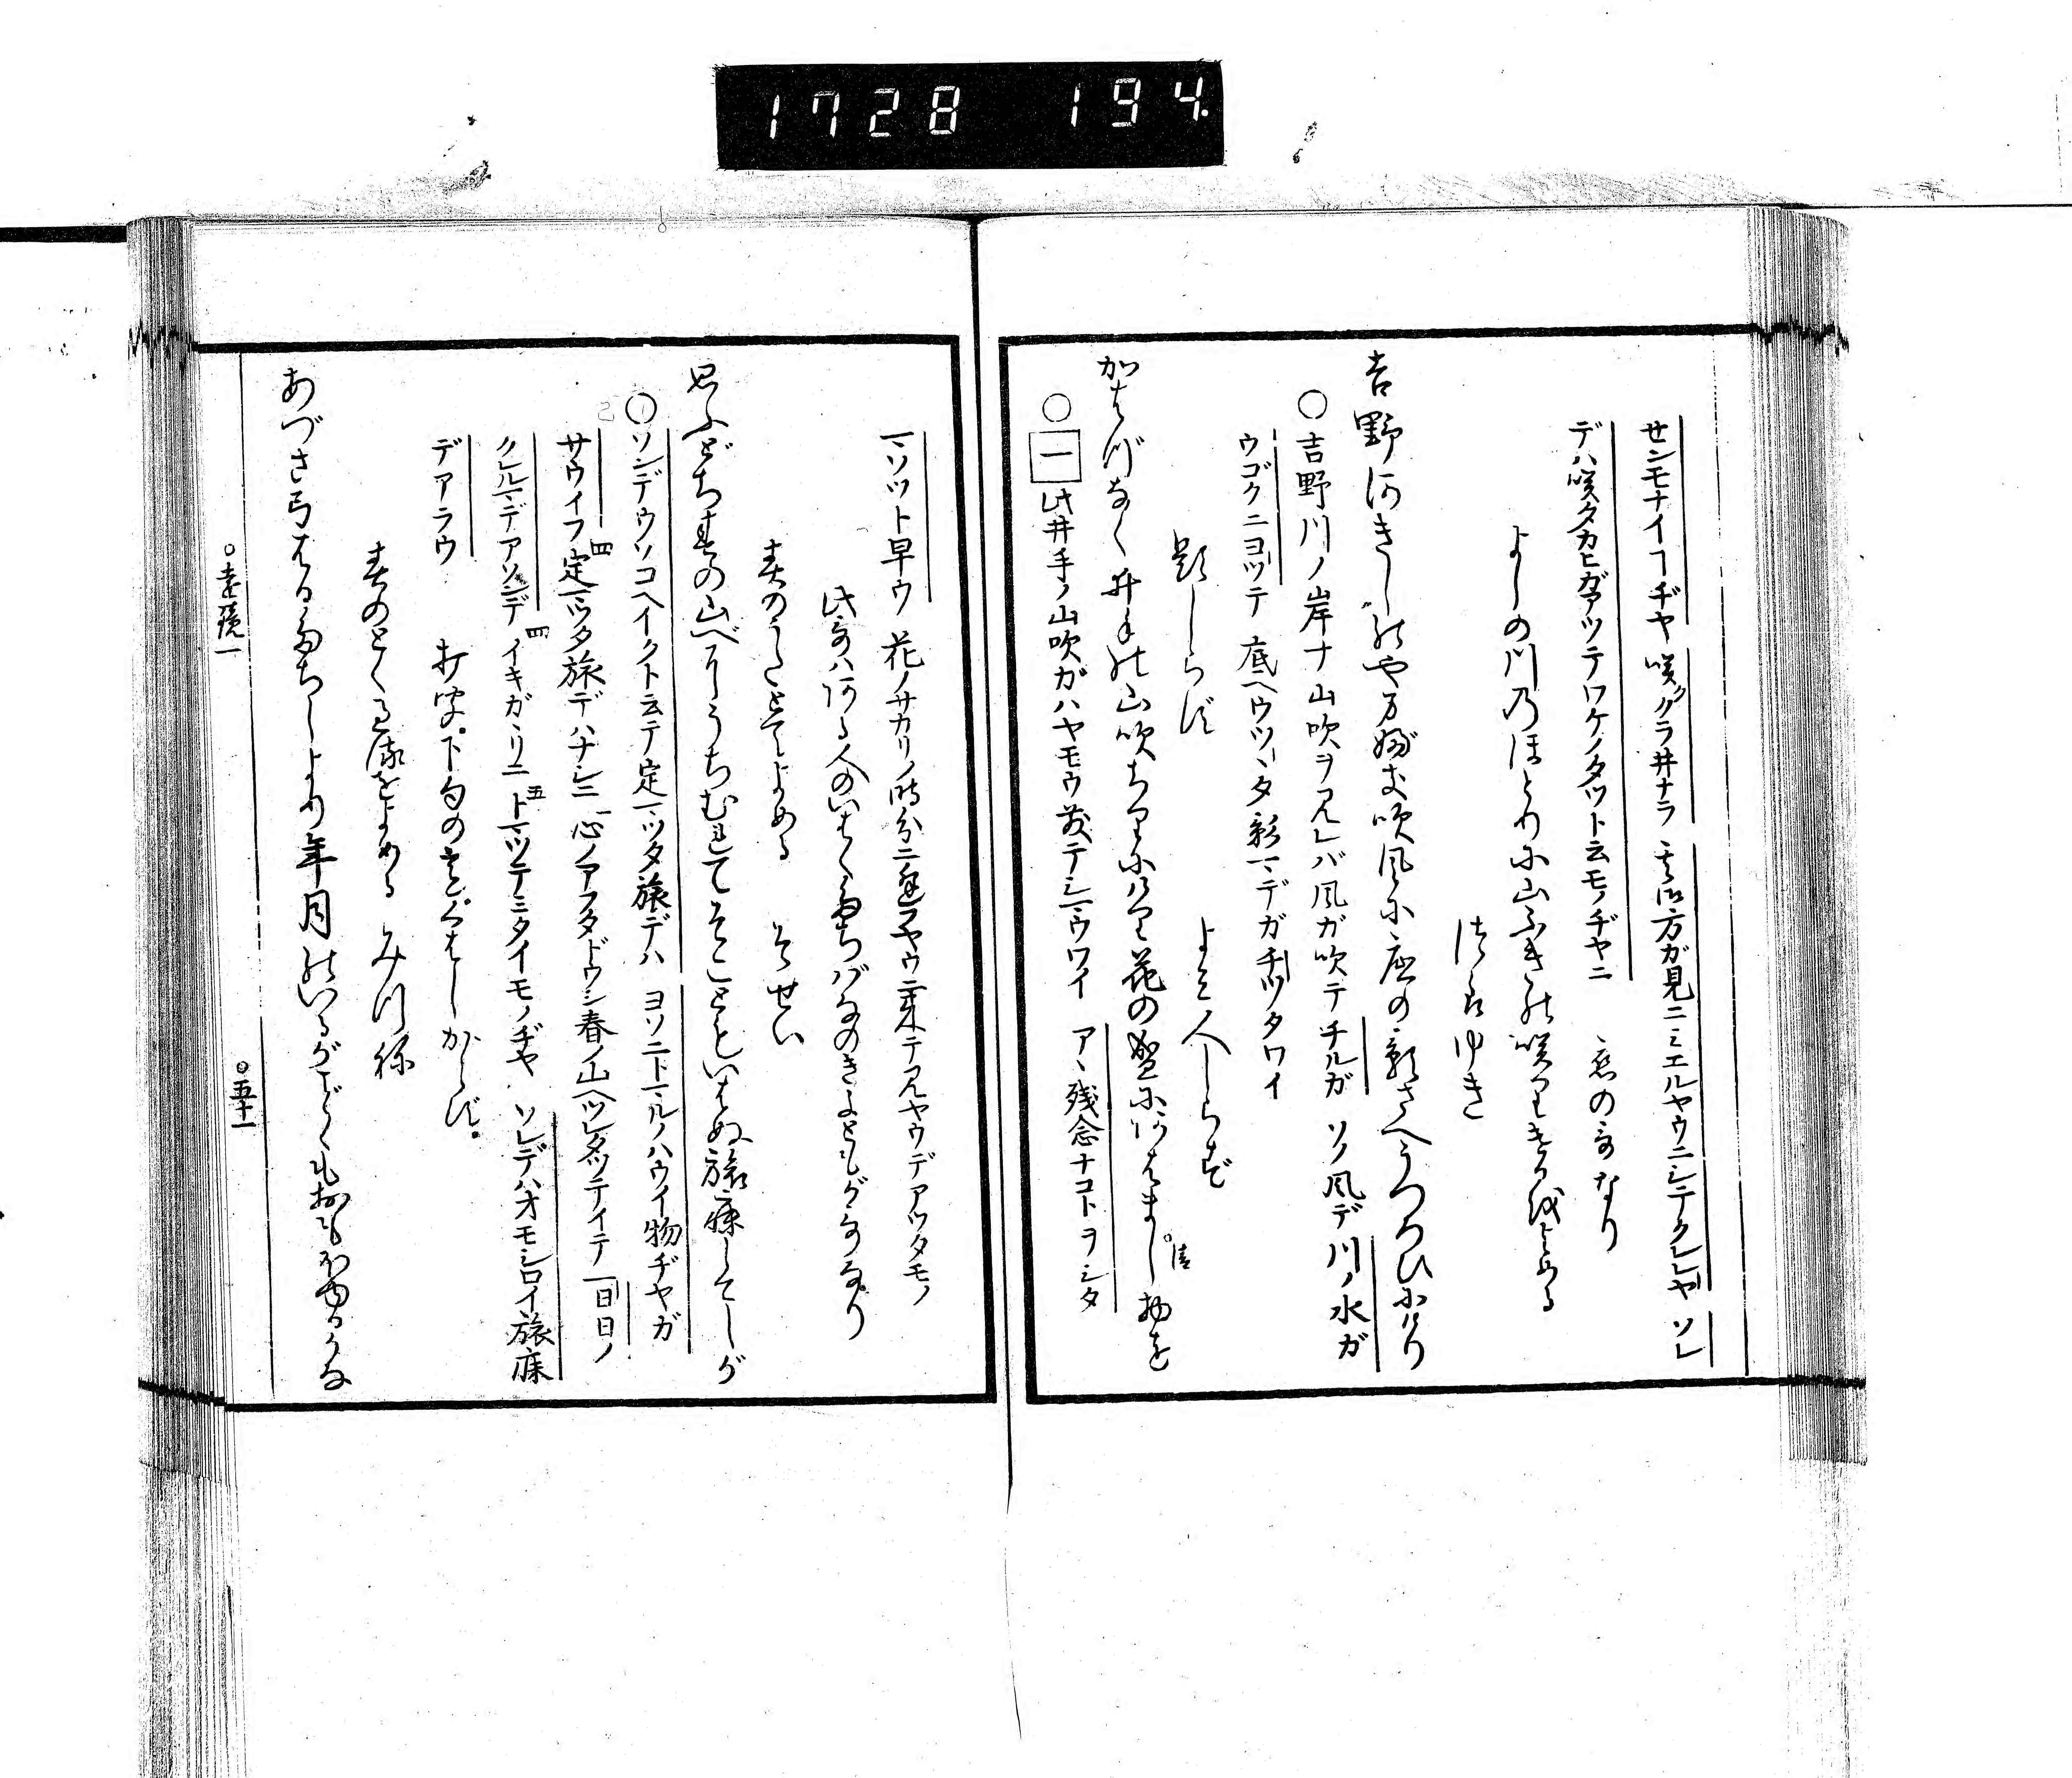 1728 194.
センモナイヿヂヤ 咲クグラ井ナラ 其比方ガ見ニミエルヤウニシテクレレヤ ソレ
デハ咲タカヒガアツテワケノタツト云モノヂヤニ 恋の哥なり
よしの川乃ほとりに山ふきの咲りけるをよめる
つらゆき
吉野河きしのやまぶき吹風に底の影さへうつろひにけり
○吉野川ノ岸ナ山吹ヲ見レバ風ガ吹テチルガ ソノ風デ川ノ水ガ
ウゴクニヨツテ 底ヘウツヽタ影マデガチツタワイ
題しらず よみ人しらず
かはづなく井手の山吹ちりにけり花の盛にあはまし物を
○一此井手ノ山吹ガハヤモウ散テシマウワイ アヽ残念ナコトヲシタ
清
マソツト早ウ 花ノサカリノ時分ニ逢フヤウニ来テ見ヤウデアツタモノ
此哥ハある人のいはくたちばなのきよともがうたなり
春のうたとてよめる そせい
思ふどち春の山べにうちむれてそこともいはぬ旅寐してしが
○ソンデウソコヘイクト云テ定マツタ旅デハ ヨソニトマルノハウイ物ヂヤガ
サウイフ定マツタ旅デハナシニ 心ノアフタドウシ春ノ山ヘツレダツテイテ 一日日ノ
クレルマデアソンデ イキガヽリニ トマツテミタイモノヂヤ ソレデハオモシロイ旅寐
デアラウ 打聞。下句のときざまわろし かくず。
春のとく過るをよめる みつね
あづさ弓はるたちしより年月のいるがごとくもおもほゆるかな
○遠鏡一 ○五十一